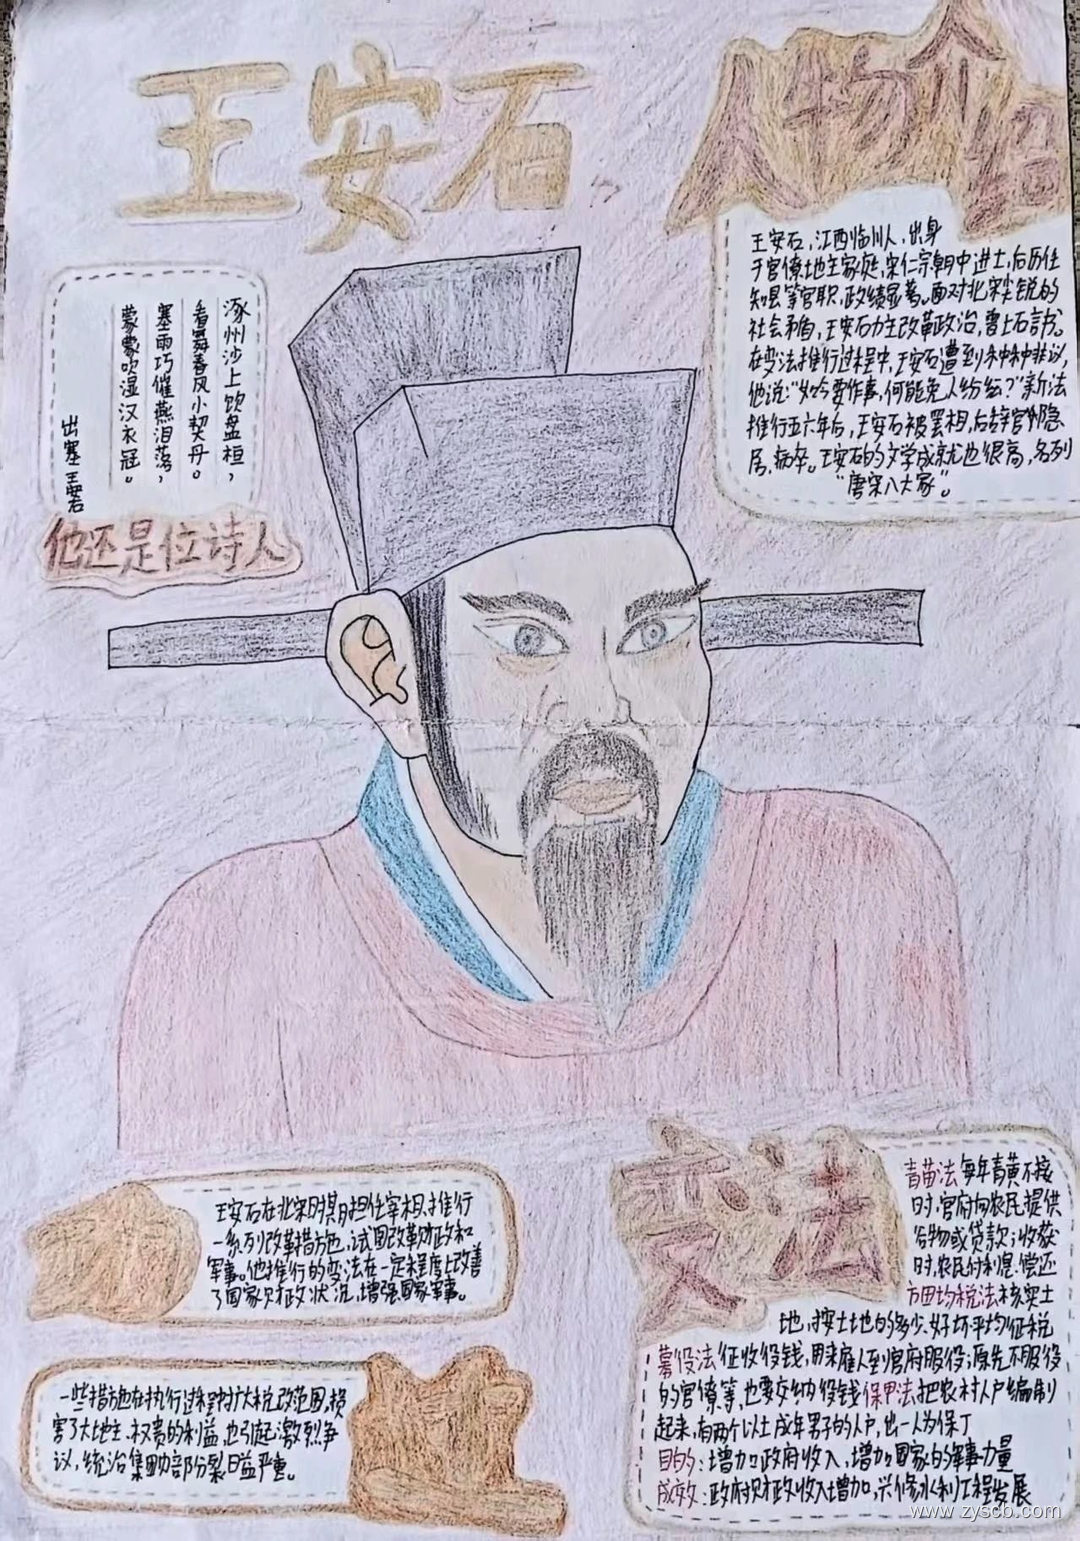 王安石
人物介绍
王安石，江西临川人，出身
于官僚地主家庭，宋仁宗朝中进士，后历任
知县等官职，政绩显著。面对北宋尖锐的
社会矛盾，王安石力主改革政治，曾上万言书。
在变法推行过程中，王安石遭到种种非议，
他说：“如今要作事，何能免人纷纭？”新法
推行五六年后，王安石被罢相，后辞官隐
居，病卒。王安石的文学成就也很高，名列
“唐宋八大家”。
涿州沙上饮盘桓，
看舞春风小契丹。
塞雨巧催燕泪落，
蒙蒙吹湿汉衣冠。
出塞 王安石
他还是位诗人
王安石在北宋时期担任宰相，推行
一系列改革措施，试图改革财政和
军事。他推行的变法在一定程度上改善
了国家财政状况，增强国家军事。
一些措施在执行过程中扩大税政范围，损
害了大地主、权贵的利益，也引起激烈争
议，统治集团内部分裂日益严重。
变法
青苗法 每年青黄不接
时，官府向农民提供
谷物或贷款；收获
时，农民付利息偿还
方田均税法 核实土
地，按土地的多少、好坏平均征税
募役法 征收役钱，用来雇人到官府服役；原先不服役
的官僚等，也要交纳役钱 保甲法：把农村人户编制
起来，有两个以上成年男子的人户，出一人为保丁
目的：增加政府收入，增加国家的军事力量
成效：政府财政收入增加，兴修水利工程发展
www.zyscb.com